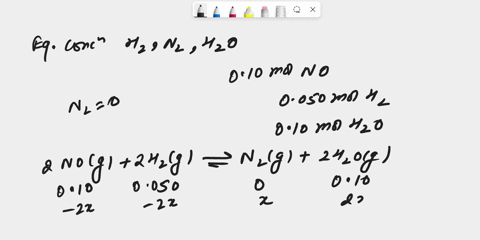 Eq. concⁿ H₂, N₂, H₂O
0.10 mol NO
N₂=0
0.050 mol H₂
0.10 mol H₂O
2 NO(g) + 2H₂(g) ⇌ N₂(g) + 2H₂O(g)
0.10 0.050 0 0.10
-2x -2x x 2x